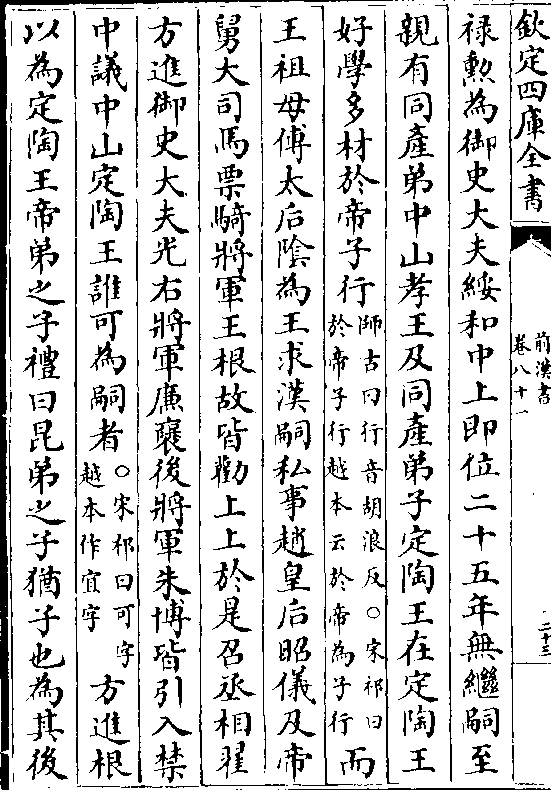 欽定四庫全書
前漢書
卷八十一
二十三
祿勲為御史大夫綏和中上即位二十五年無繼嗣至
親有同產弟中山孝王及同產弟子定陶王在定陶王
好學多材於帝子行師古曰行音胡浪反○宋祁曰於帝子行越本云於帝為子行而
王祖母傅太后陰為王求漢嗣私事趙皇后昭儀及帝
舅大司馬票騎將軍王根故皆勸上上於是召丞相翟
方進御史大夫光右將軍廉襃後將軍朱博皆引入禁
中議中山定陶王誰可為嗣者○宋祁曰可字越本作宜字方進根
以為定陶王帝弟之子禮曰昆弟之子猶子也為其後